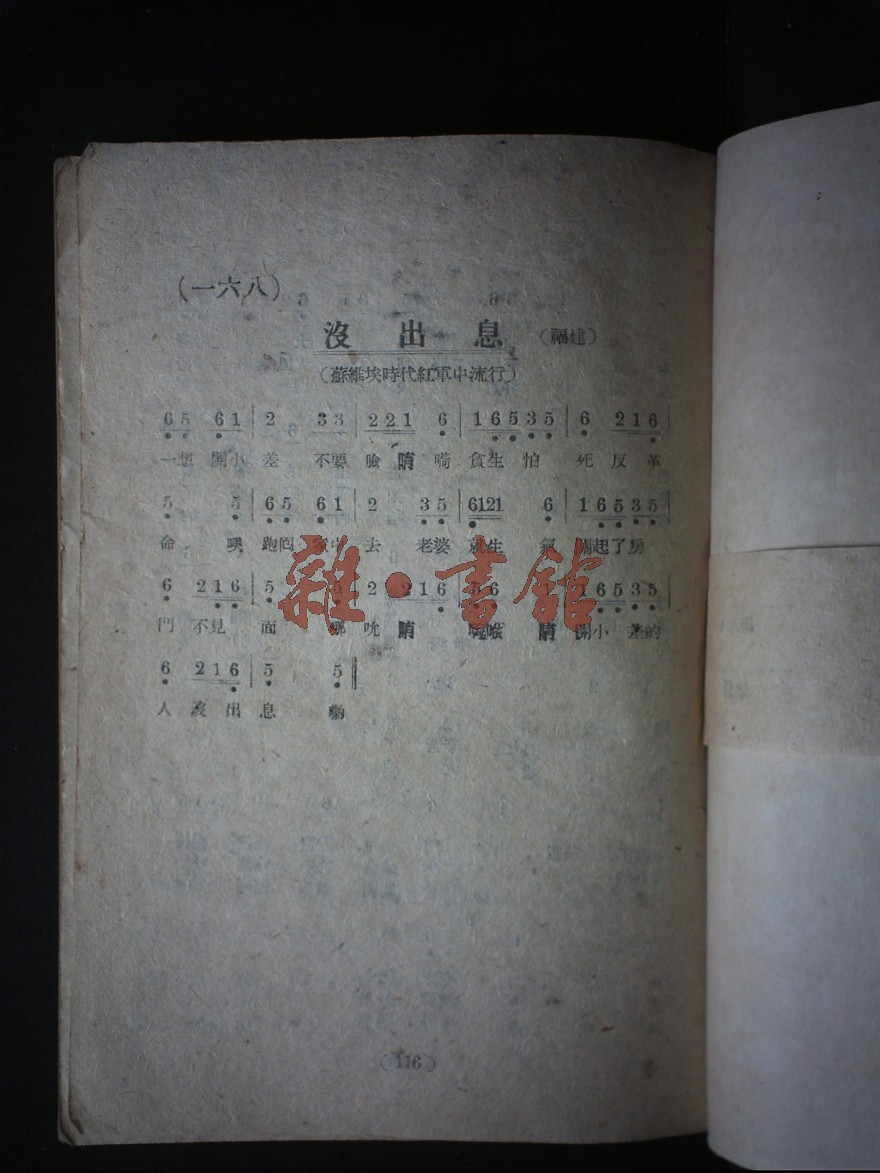 (一六八)
沒出息 (福建)
(蘇維埃時代紅軍中流行)
6 5 6 1 | 2 3 3 | 2 2 1 6 | 1 6 5 3 5 | 6 2 1 6
一想開小差 不要臉 嗬 貪生怕死反革
5 5 | 6 5 6 1 | 2 3 5 | 6121 6 | 1 6 5 3 5
命 噗 跑囘家中去 老婆就生氣 關起了房
6 2 1 6 | 5 5 | 2 2 1 6 | 5 6 1 6 5 3 5
門不見面 開小差的
6 2 1 6 | 5 5
人沒出息 喲
雜·書館
(116)